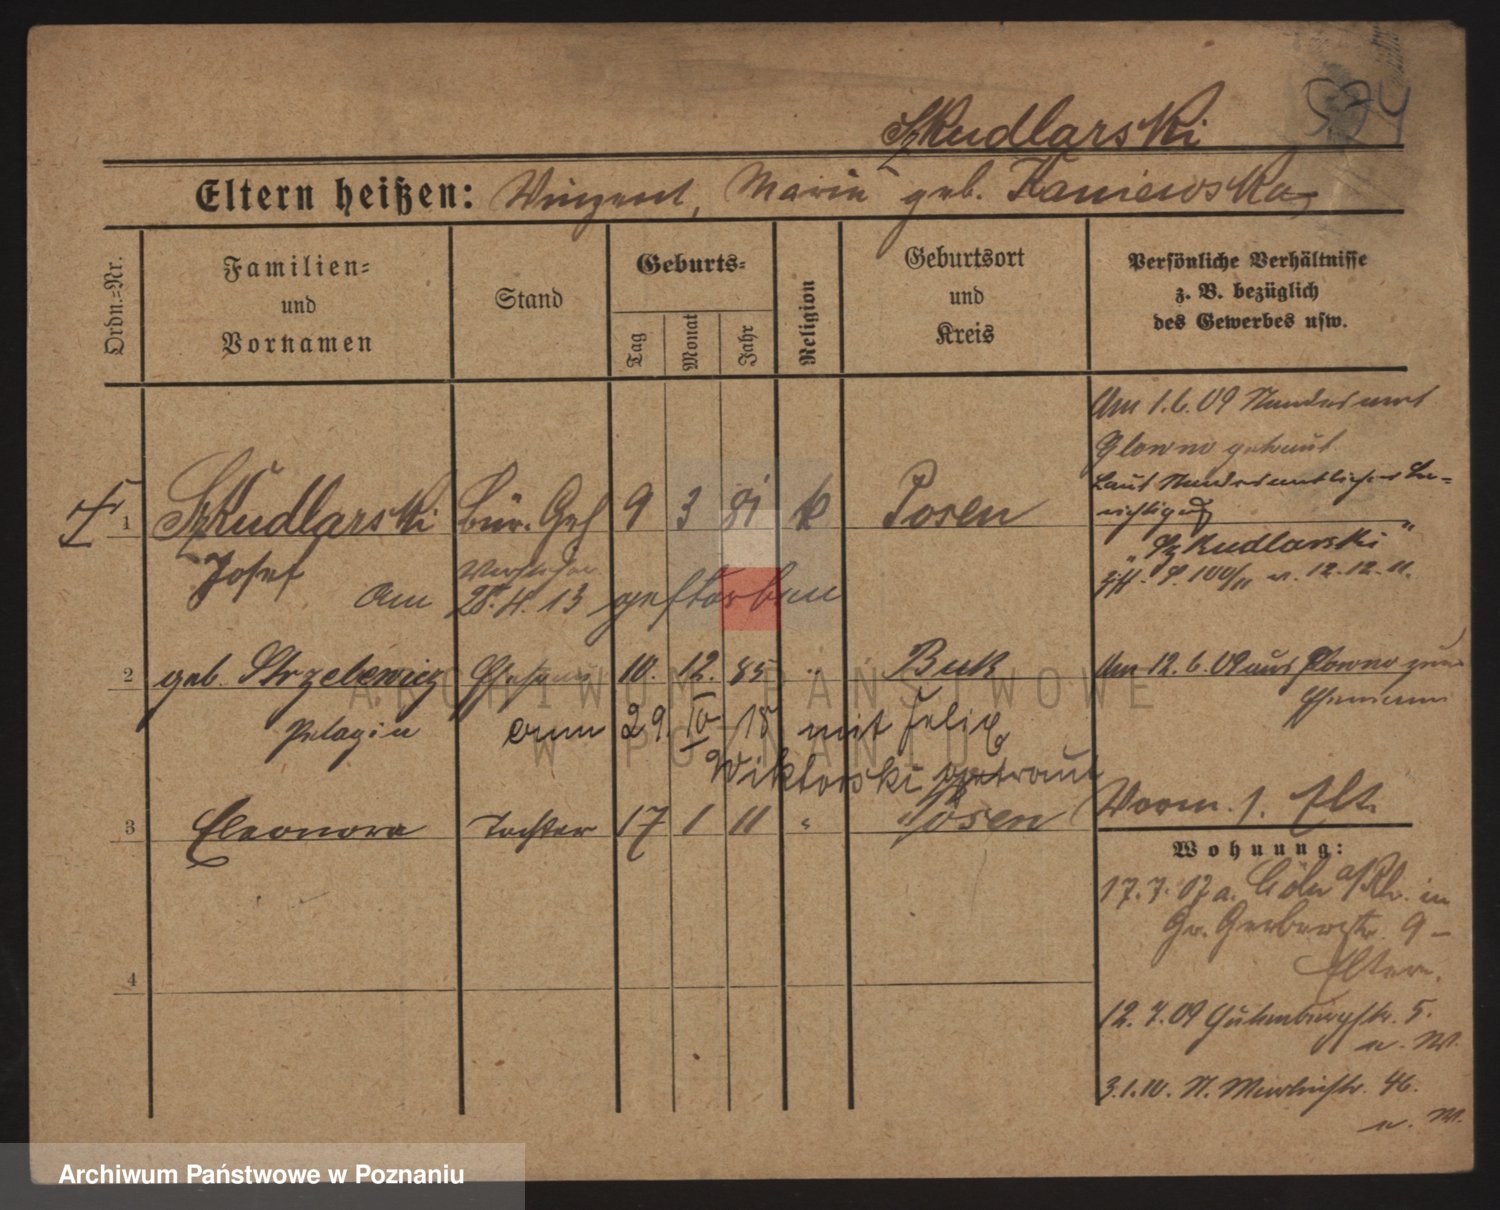 Szkudlarski
Eltern heißen: Vinzent, Maria geb. Kaniewska
Ordn.-Nr.
Familien-
und
Vornamen
Stand
Geburts-
Tag
Monat
Jahr
Religion
Geburtsort
und
Kreis
Persönliche Verhältnisse
z. B. bezüglich
des Gewerbes usw.
Am 1.6.09 Standesamt
Glowno getraut
Laut Standesamtlicher Be-
richtigung
"Szkudlarski"
1 Szkudlarski Bür. Geh 9 3 81 k Posen
Josef
12.12.11.
Am 28.4.13 gestorben
2 geb. Strzelewicz Ehefrau 10. 12. 85 " Buk
Am 12.6.09 aus Glowno zum
Ehemann
Pelagia
am 29. IV 18 mit Felix
Wiktorski getraut
3 Eleonora Tochter 17 1 11 " Posen
Vorm. s. Elt.
Wohnung:
17.7.07 a. Cöln a/Rh. in
Gr. Gerberstr. 9 -
Eltern.
4
12.7.09 Gutenbergstr. 5.
3.1.10. St. Martinstr. 46.
ARCHIWUM PAŃSTWOWE
W POZNANIU
Archiwum Państwowe w Poznaniu